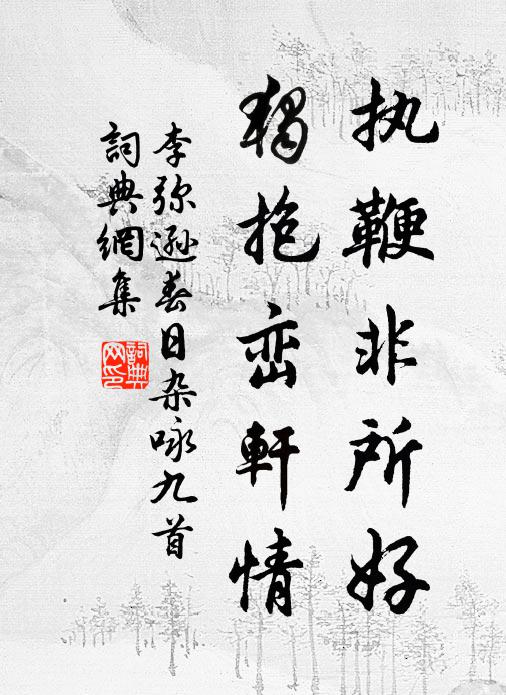 执鞭非所好
独抱峦軒情
李弥遜春日杂咏九首
詞典網集
詞典网印